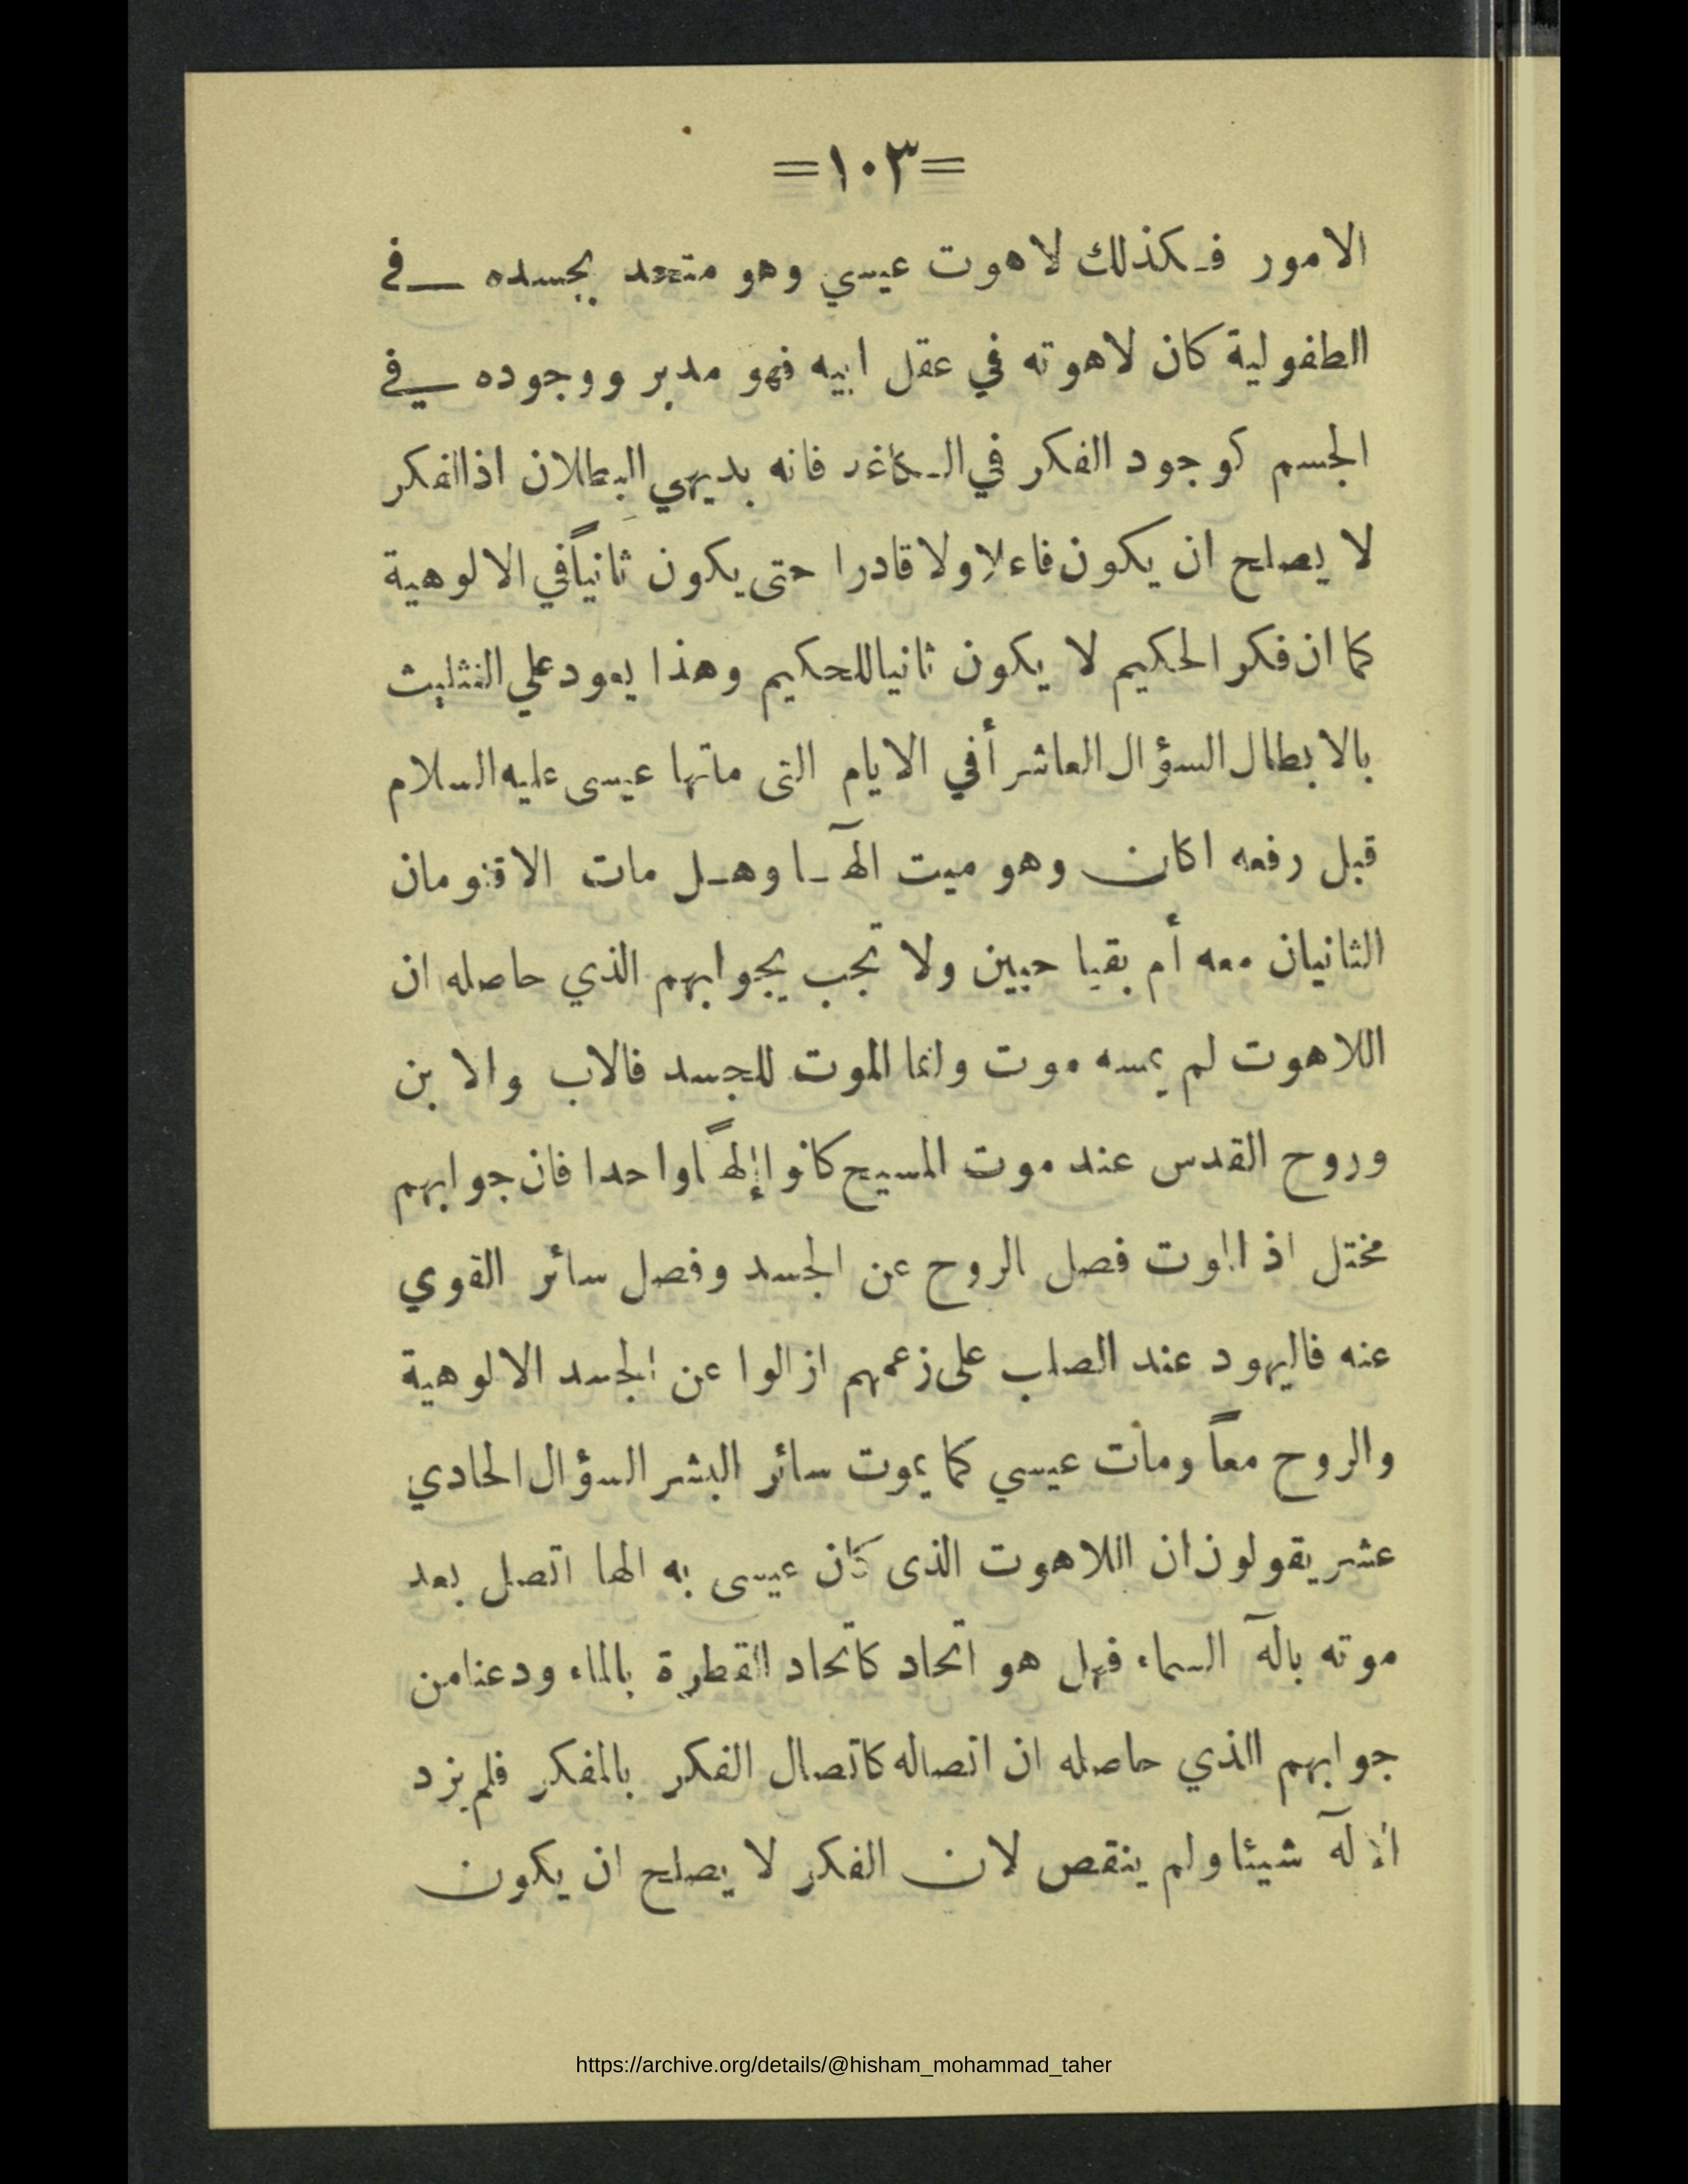 =١٠٣=
الامور فكذلك لاهوت عيسي وهو متحد بجسده في
الطفولية كان لاهوته في عقل ابيه فهو مدبر ووجوده في
الجسم كوجود الفكر في الكاغد فانه بديهي البطلان اذ الفكر
لا يصلح ان يكون فاعلا ولا قادرا حتى يكون ثانياً في الالوهية
كما ان فكر الحكيم لا يكون ثانيا للحكيم وهذا يعود علي التثليث
بالابطال السؤال العاشر أفي الايام التى ماتها عيسى عليه السلام
قبل رفعه اكان وهو ميت الٓها وهل مات الاقنومان
الثانيان معه أم بقيا حيين ولا تجب بجوابهم الذي حاصله ان
اللاهوت لم يمسه موت وانما الموت للجسد فالاب والابن
وروح القدس عند موت المسيح كانوا إلهاً واحدا فان جوابهم
مختل اذ الموت فصل الروح عن الجسد وفصل سائر القوي
عنه فاليهود عند الصلب على زعمهم ازالوا عن الجسد الالوهية
والروح معاً ومات عيسي كما يموت سائر البشر السؤال الحادي
عشر يقولون ان اللاهوت الذى كان عيسى به الها اتصل بعد
موته بالٓه السماء فهل هو اتحاد كاتحاد القطرة بالماء ودعنا من
جوابهم الذي حاصله ان اتصاله كاتصال الفكر بالمفكر فلم يزد
الإلٓه شيئا ولم ينقص لان الفكر لا يصلح ان يكون
https://archive.org/details/@hisham_mohammad_taher